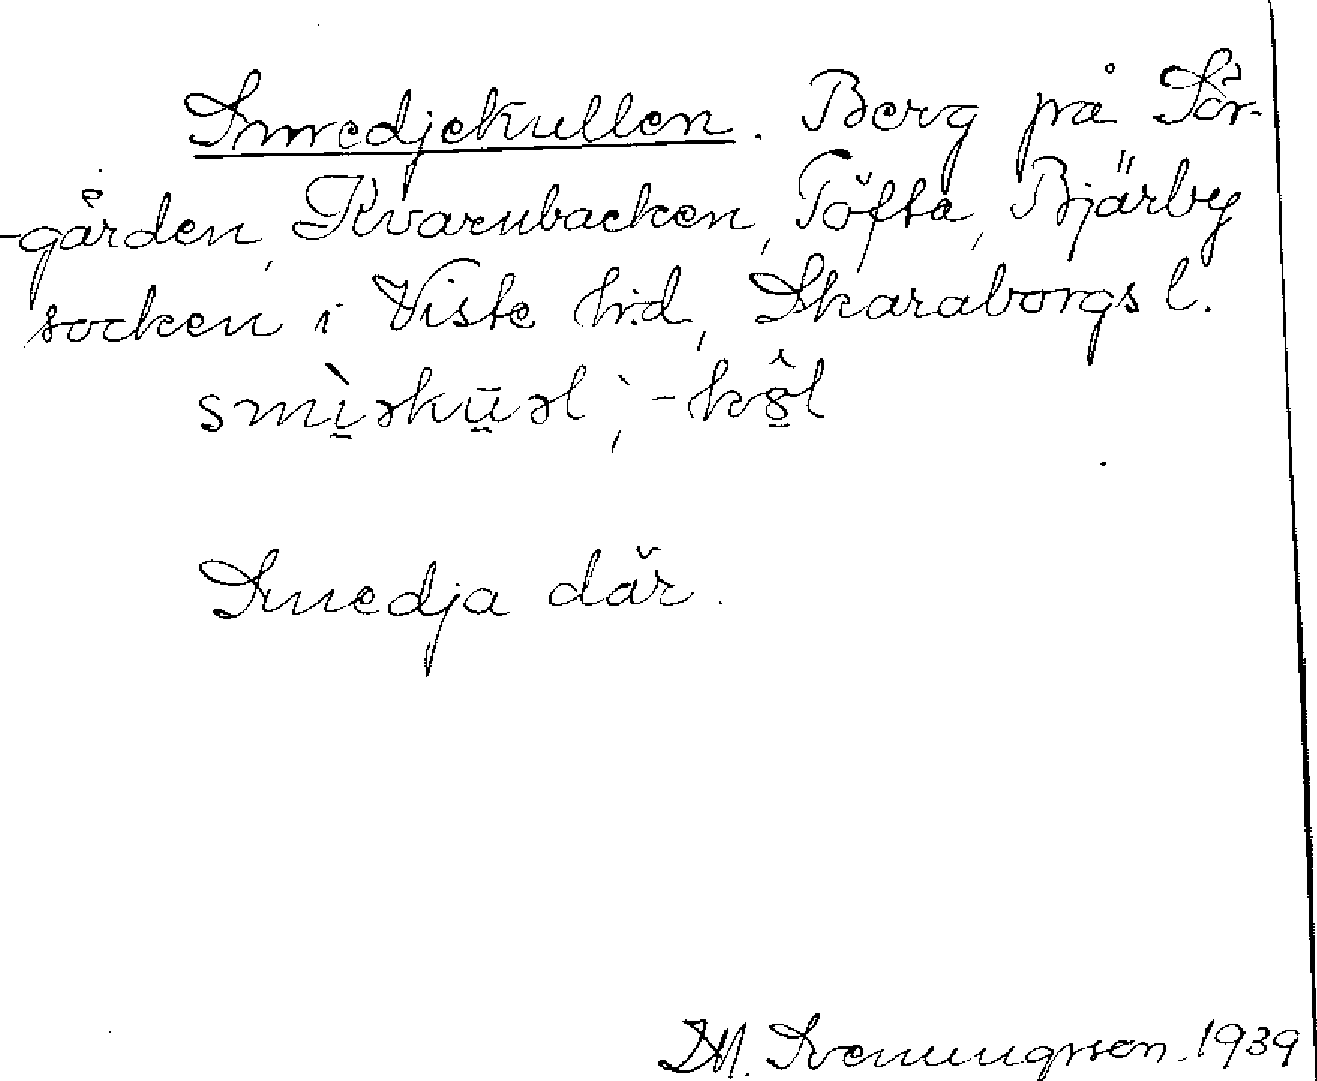 Smedjekullen. Berg på Sör-
-gården, Kvarnbacken, Töfta, Bjärby
socken i Viste h:d, Skaraborgs l.
Smedja där.
D.M. Svenungsson. 1939